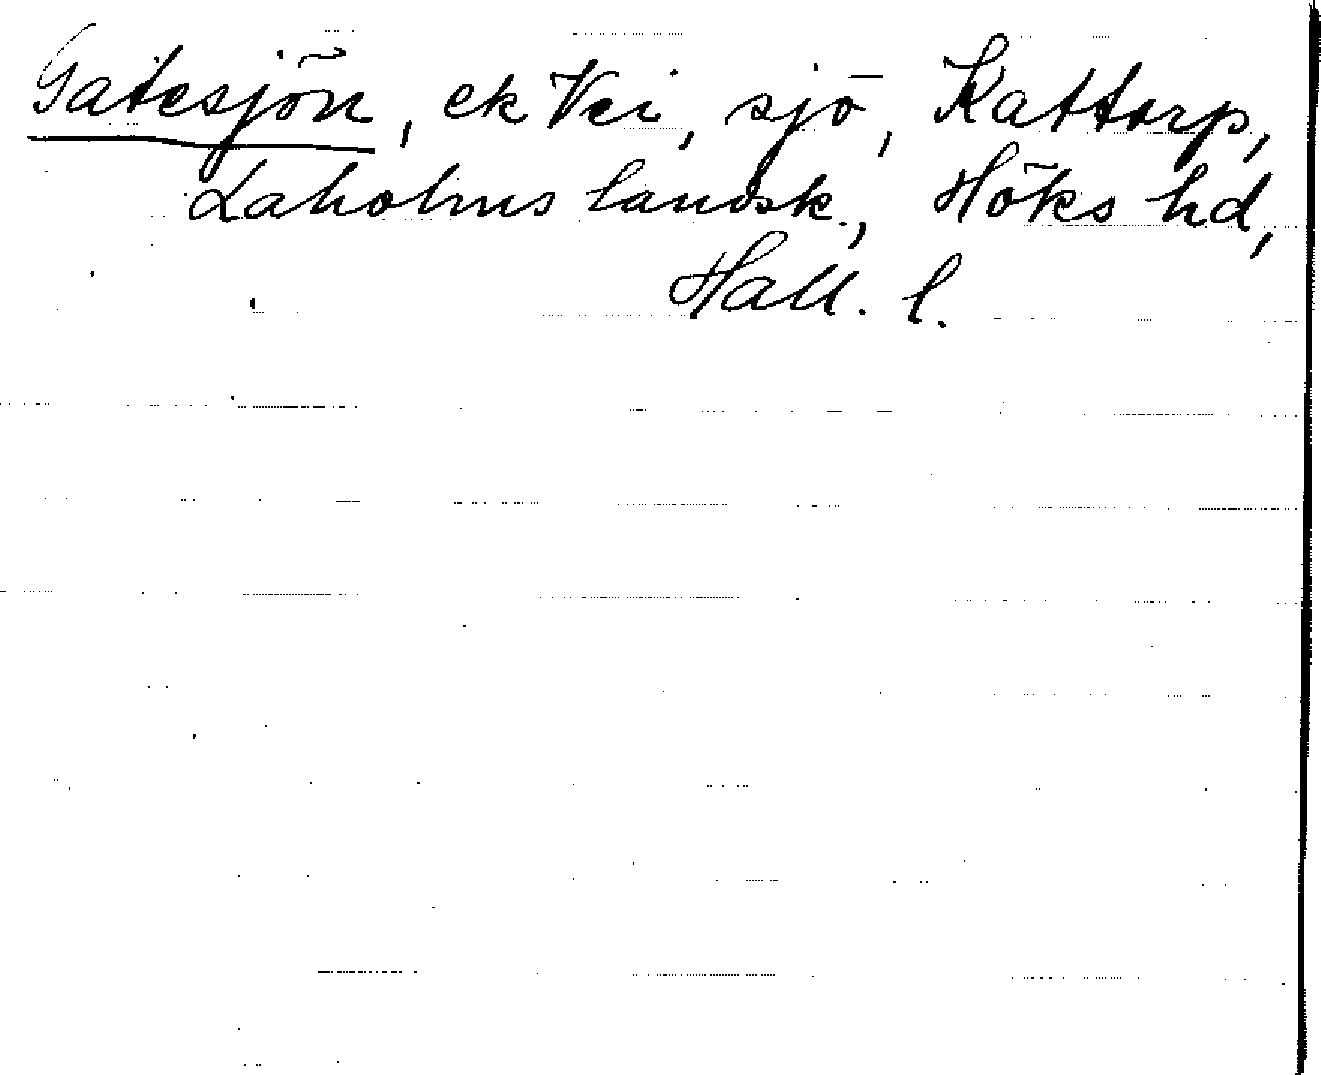 Gatesjön, ek Vei, sjö, Kattorp,
Laholms landsk., Höks hd,
Hall. l.